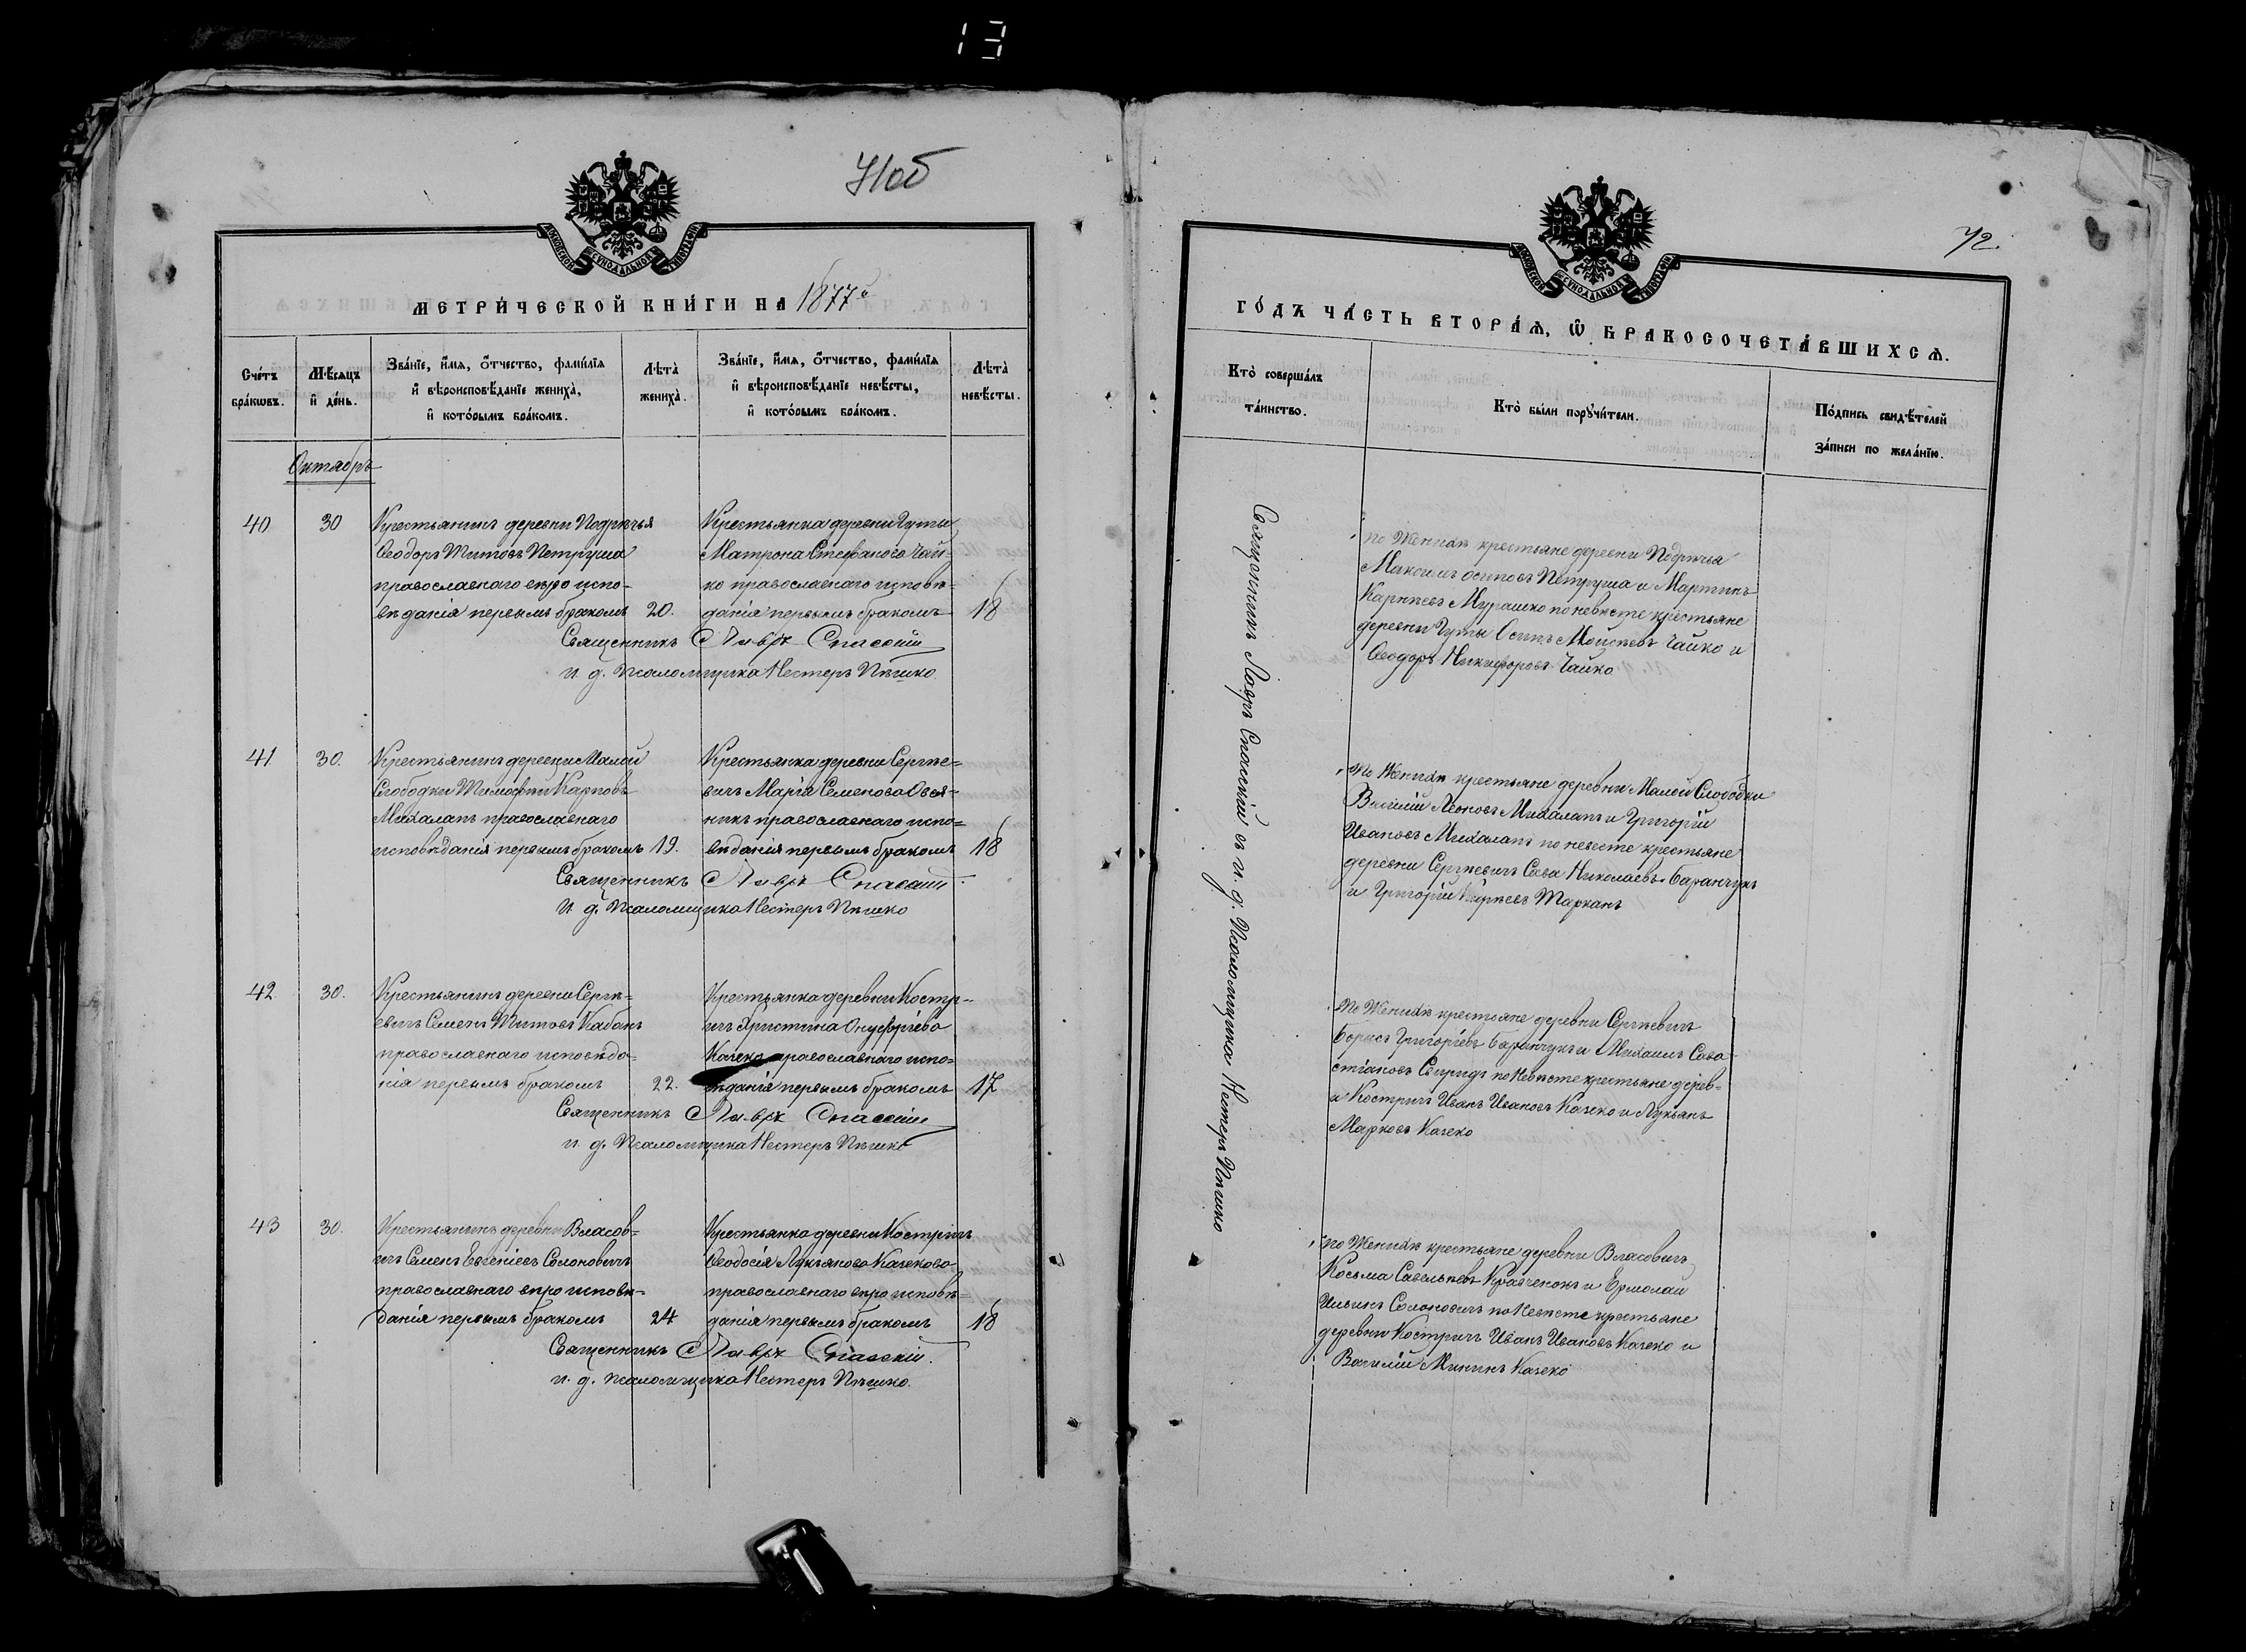 13
71об
МЕТРИ́ЧЕСКОЙ КНИ́ГИ НА 1877й
Сче́тъ бра́ковъ.
Мѣ́сяцъ и де́нь.
Зва́нїе, и́мя, о́тчество, фами́лїя и вѣроисповѣ́данїе жениха̀, и кото́рымъ бра́комъ.
Лѣта̀ жениха̀.
Зва́нїе, и́мя, о́тчество, фами́лїя и вѣроисповѣ́данїе невѣ́сты, и кото́рымъ бра́комъ.
Лѣта̀ невѣ́сты.
Октябрь
40
30
Крестьянинъ деревни Подрѣчья
Ѳеодоръ Титовъ Петруша
православнаго вѣро испо-
вѣданія первымъ бракомъ
20.
Крестьянка деревни Гуты
Матрона Стефанова Чай-
ко православнаго исповѣ-
данія первымъ бракомъ
18
Священникъ Лавръ Спасскій
и. д. псаломщика Нестеръ Пѣшко
41
30.
Крестьянинъ деревни Малой
Слободки Тимофей Карповъ
Михалапъ православнаго
исповѣданія первымъ бракомъ
19.
Крестьянка деревни Сергѣе-
вичъ Марія Семенова Овся-
никъ православнаго испо-
вѣданія первымъ бракомъ
18
Священникъ Лавръ Спасскій
и. д. псаломщика Нестеръ Пѣшко
42
30.
Крестьянинъ деревни Сергѣ-
евичъ Семенъ Титовъ Кабанъ
православнаго исповѣда-
нія первымъ бракомъ
22.
Крестьянка деревни Костр-
ичъ Христина Онуфріева
Качеко православнаго испо-
вѣданія первымъ бракомъ
17
Священникъ Лавръ Спасскій
и. д. псаломщика Нестеръ Пѣшко
43
30.
Крестьянинъ деревни Власов-
ичъ Семенъ Евгеніевъ Солоновичъ
православнаго вѣро исповѣ-
данія первымъ бракомъ
24
Крестьянка деревни Костричъ
Ѳеодосія Лукьянова Качеково
православнаго вѣро исповѣ-
данія первымъ бракомъ
18
Священникъ Лавръ Спасскій.
и. д. псаломщика Нестеръ Пѣшко.
72.
ГО́ДЪ ЧА́СТЬ ВТОРА́Я, Ѡ БРАКОСОЧЕТА́ВШИХСЯ.
Кто̀ соверша́лъ та́инство.
Кто̀ бы́ли поручи́тели.
По́дпись свидѣ́телей за́писи по жела́нїю.
Священникъ Лавръ Спасскій съ и. д. Псаломщика Нестеръ Пѣшко
По Женихѣ крестьяне деревни Подрѣчья
Максимъ Осиповъ Петруша и Мартинъ
Карнѣевъ Мурашко по невѣсте крестьяне
деревни Гуты Осипъ Моисѣевъ Чайко и
Ѳеодоръ Никифоровъ Чайко
По Женихѣ крестьяне деревни Малой Слободки
Василій Леоновъ Михалапъ и Григорій
Ивановъ Михалапъ по невесте крестьяне
деревни Сергѣевичъ Сава Николаевъ Баранчукъ
и Григорій Тарканъ
По Женихѣ крестьяне деревни Сергѣевичъ
Борисъ Григоріевъ Баранчукъ и Михаилъ Сава-
стіановъ Свиридъ по Невѣсте крестьяне дерев-
и Костричъ Иванъ Ивановъ Качеко и Лукьянъ
Марковъ Качеко
По Женихѣ крестьяне деревни Власовичъ
Косьма Савельевъ Кравченокъ и Ермолай
Ильинъ Солоновичъ по Невѣсте крестьяне
деревни Костричъ Иванъ Ивановъ Качеко и
Василій Мининъ Качеко